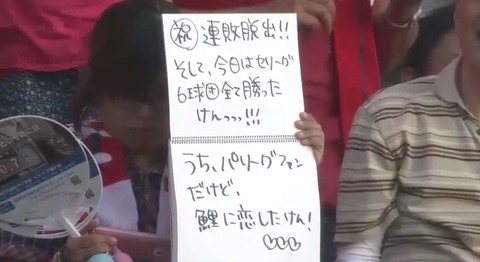 ㊗ 連敗脱出!!
そして、今日はセリーグ
6球団全て勝った
けんっっっ!!!
うち、パリーグファン
だけど、
鯉に恋したけん!
♡♡♡